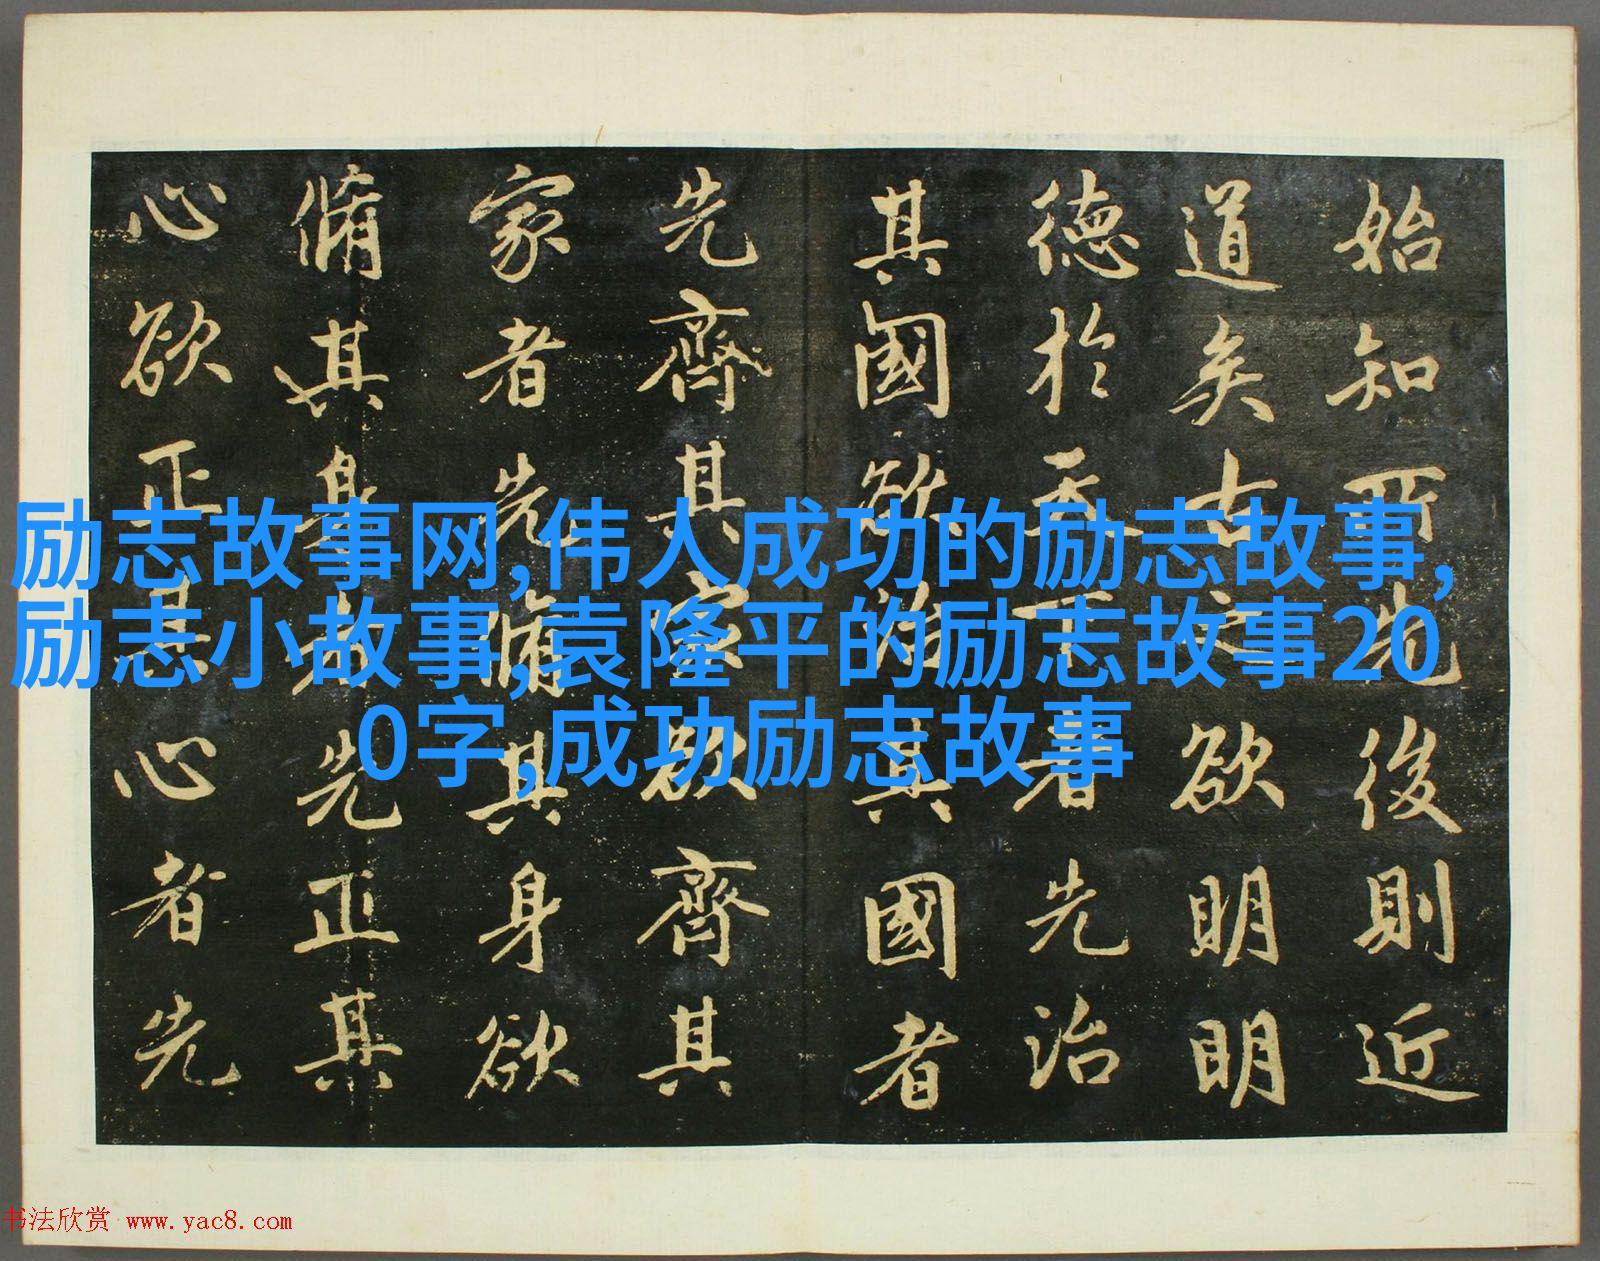 始知所先後則近
道矣古之欲明明
德於天下者先治
其國欲治其國者
先齊其家欲齊其
家者先脩其身欲
脩其身者先正其
心欲正其心者先
励志故事网,伟人成功的励志故事,
励志小故事,袁隆平的励志故事20
0字,成功励志故事
书法欣赏 www.yac8.com